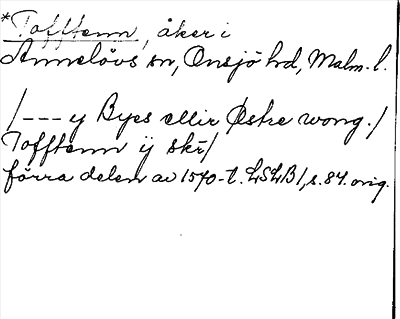 *Tofftenn, åker i
Annelövs sn, Onsjö hd, Malm. l.
/--- y Byes ellir Østre wong./
Tofftenn ij skr̄/
förra delen av 1570-t. LSLB1, s. 84. orig.